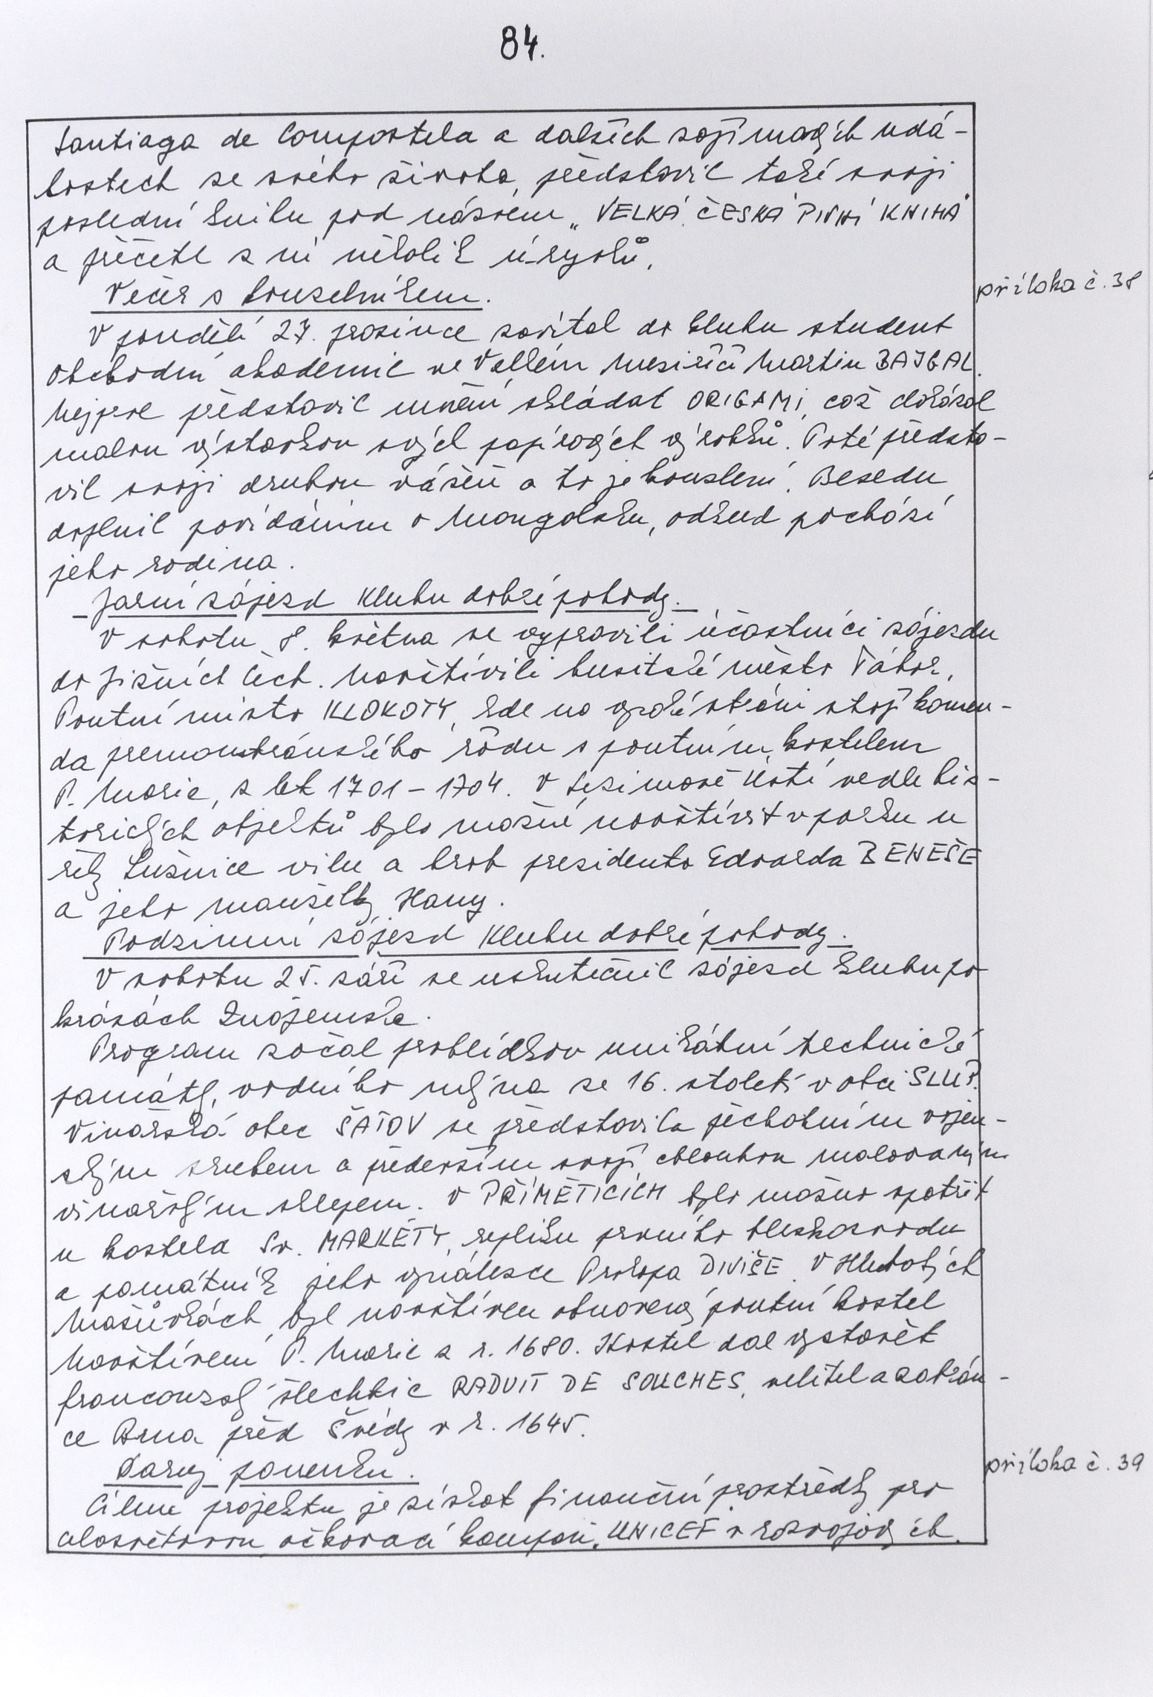 84.
Santiaga de Compostela a dalších zajímavých udá-
lostech ze svého života, představil také svoji
poslední knihu pod názvem „VELKÁ ČESKÁ PIVNÍ KNIHA"
a přečetl z ní několik úryvků.
Večer s kouzelníkem.
příloha č. 38
V pondělí 27. prosince zavítal do klubu student
obchodní akademie ve Vallém Meziříčí Martin BAJGAL.
Nejprve představil umění skládat ORIGAMI, což dokázal
malou výstavkou svých papírových výrobků. Poté předsta-
vil svoji druhou vášeň a to je kouzlení. Besedu
doplnil povídáním o Mongolsku, odkud pochází
jeho rodina.
Jarní zájezd Klubu dobré pohody.
V sobotu 8. května se vypravili účastníci zájezdu
do jižních Čech. Navštívili husitské město Tábor,
Poutní místo KLOKOTY, kde na vyvýšenině stojí komen-
da premonstránského řádu s poutním kostelem
P. Marie, z let 1701 – 1704. V Sezimově Ústí vedle his-
torických objektů bylo možné navštívit v parku u
řeky Lužnice vilu a hrob presidenta Edvarda BENEŠE
a jeho manželky Hany.
Podzimní zájezd Klubu dobré pohody.
V sobotu 25. září se uskutečnil zájezd klubu po
krásách Znojemska.
Program začal prohlídkou unikátní technické
památky, vodního mlýna ze 16. století v obci SLUP.
Vinařská obec ŠATOV se představila pěchotním vojen-
ským srubem a především svojí chloubou malovaným
vinařským sklepem. V PŘÍMĚTICÍCH bylo možno spatřit
u kostela Sv. MARKÉTY, repliku prvního bleskosvodu
a památník jeho vynálezce Prokopa DIVIŠE. V Hlubokých
Mašůvkách byl navštíven obnovený poutní kostel
Navštívení P. Marie z r. 1680. Kostel dal vystavět
francouzský šlechtic RADUIT DE SOUCHES, velitel a zachrán-
ce Brna před Švédy v r. 1645.
Daruj panenku.
příloha č. 39
Cílem projektu je získat finanční prostředky pro
celosvětovou očkovací kampaň UNICEF v rozvojových